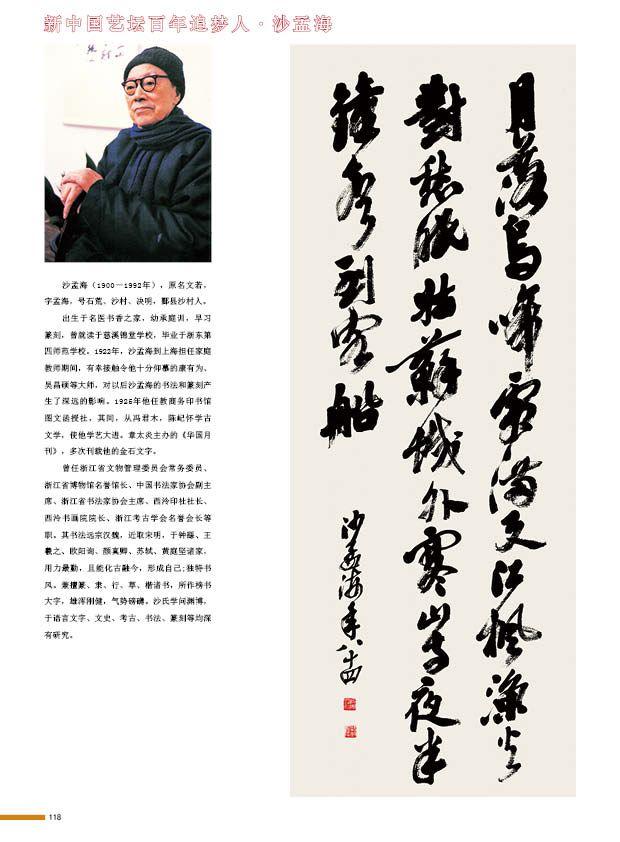 新中国艺坛百年追梦人·沙孟海
沙孟海（1900—1992年），原名文若，
字孟海，号石荒、沙村、决明，鄞县沙村人。
出生于名医书香之家，幼承庭训，早习
篆刻，曾就读于慈溪锦堂学校，毕业于浙东第
四师范学校。1922年，沙孟海到上海担任家庭
教师期间，有幸接触令他十分仰慕的康有为、
吴昌硕等大师，对以后沙孟海的书法和篆刻产
生了深远的影响。1925年他任教商务印书馆
图文函授社，其间，从冯君木，陈屺怀学古
文学，使他学艺大进。章太炎主办的《华国月
刊》，多次刊载他的金石文字。
曾任浙江省文物管理委员会常务委员、
浙江省博物馆名誉馆长、中国书法家协会副主
席、浙江省书法家协会主席、西泠印社社长、
西泠书画院院长、浙江考古学会名誉会长等
职。其书法远宗汉魏，近取宋明，于钟繇、王
羲之、欧阳询、颜真卿、苏轼、黄庭坚诸家，
用力最勤，且能化古融今，形成自己;独特书
风。兼擅篆、隶、行、草、楷诸书，所作榜书
大字，雄浑刚健，气势磅礴。沙氏学问渊博，
于语言文字、文史、考古、书法、篆刻等均深
有研究。
月落乌啼霜满天江枫渔火
對愁眠姑蘇城外寒山寺夜半
鐘聲到客船
沙孟海年八十四
118